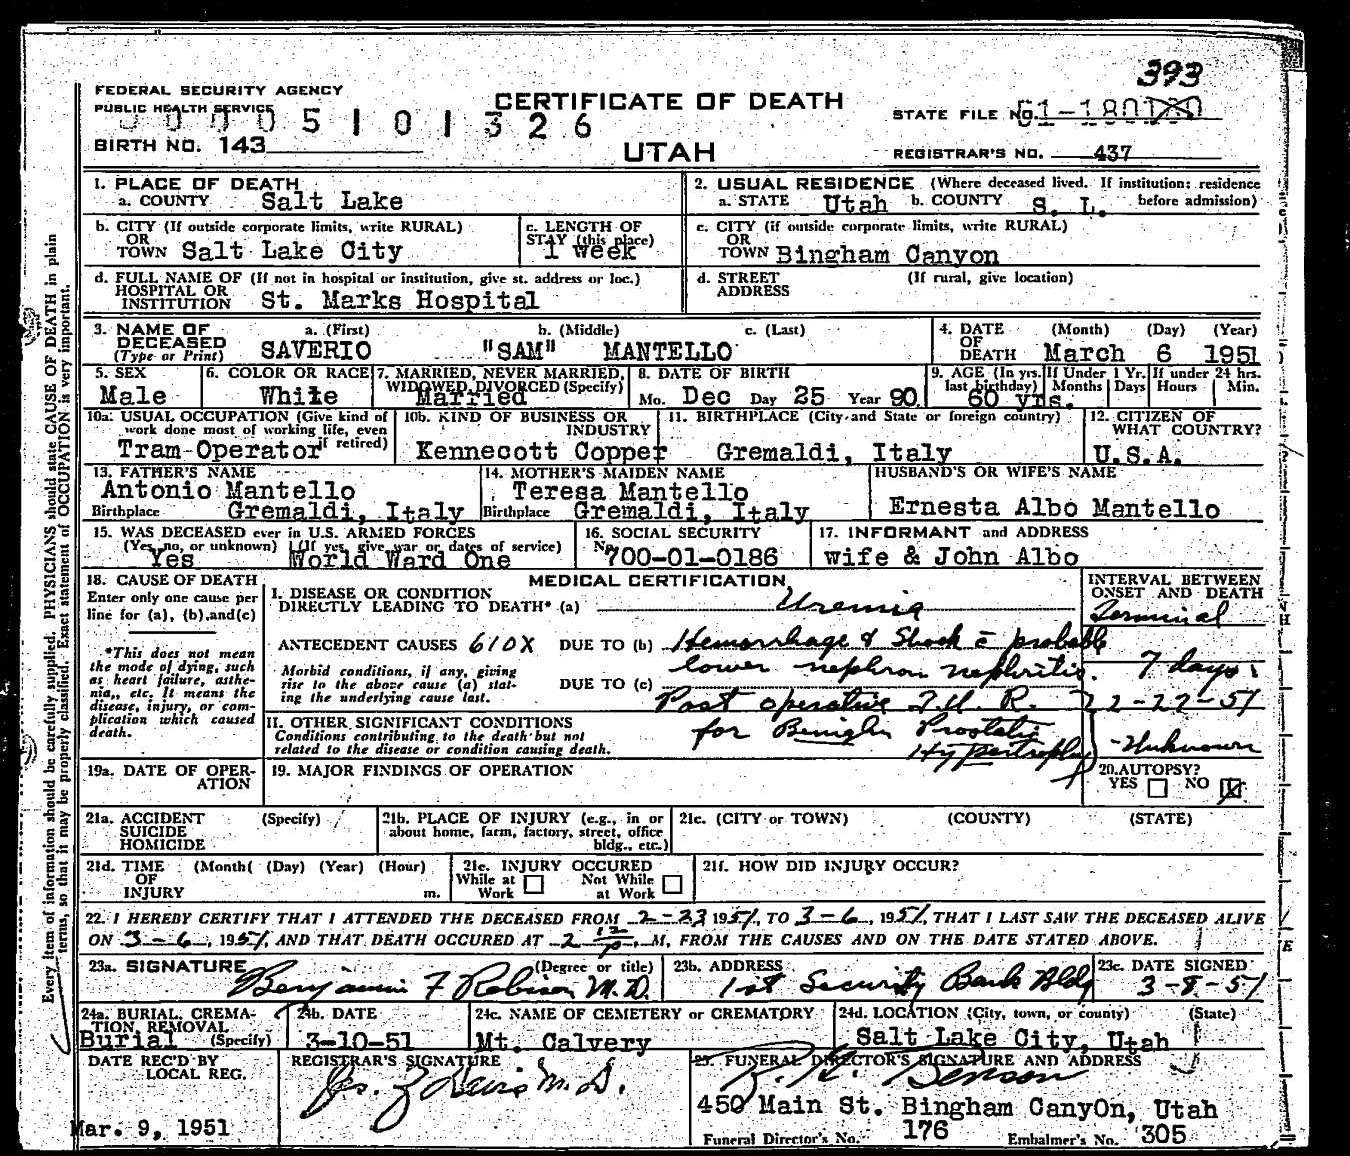 393
FEDERAL SECURITY AGENCY
PUBLIC HEALTH SERVICE
CERTIFICATE OF DEATH
STATE FILE NO. 51-180130
5 1 0 1 3 2 6
BIRTH NO. 143
UTAH
REGISTRAR'S NO. 437
1. PLACE OF DEATH
a. COUNTY Salt Lake
2. USUAL RESIDENCE (Where deceased lived. If institution: residence before admission)
a. STATE Utah b. COUNTY S. L.
b. CITY (If outside corporate limits, write RURAL)
OR
TOWN Salt Lake City
c. LENGTH OF
STAY (this place)
1 week
c. CITY (if outside corporate limits, write RURAL)
OR
TOWN Bingham Canyon
d. FULL NAME OF (If not in hospital or institution, give st. address or loc.)
HOSPITAL OR
INSTITUTION St. Marks Hospital
d. STREET (If rural, give location)
ADDRESS
3. NAME OF DECEASED (Type or Print)
a. (First) b. (Middle) c. (Last)
SAVERIO "SAM" MANTELLO
4. DATE OF DEATH (Month) (Day) (Year)
March 6 1951
5. SEX
Male
6. COLOR OR RACE
White
7. MARRIED, NEVER MARRIED,
WIDOWED, DIVORCED (Specify)
Married
8. DATE OF BIRTH
Mo. Dec Day 25 Year 90
9. AGE (In yrs. last birthday)
60 yrs.
If Under 1 Yr. Months Days
If under 24 hrs. Hours Min.
10a. USUAL OCCUPATION (Give kind of
work done most of working life, even
if retired)
Tram Operator
10b. KIND OF BUSINESS OR
INDUSTRY
Kennecott Copper
11. BIRTHPLACE (City and State or foreign country)
Gremaldi, Italy
12. CITIZEN OF
WHAT COUNTRY?
U.S.A.
13. FATHER'S NAME
Antonio Mantello
Birthplace Gremaldi, Italy
14. MOTHER'S MAIDEN NAME
Teresa Mantello
Birthplace Gremaldi, Italy
HUSBAND'S OR WIFE'S NAME
Ernesta Albo Mantello
15. WAS DECEASED ever in U.S. ARMED FORCES
(Yes, no, or unknown) (If yes, give war or dates of service)
Yes World Ward One
16. SOCIAL SECURITY
No. 700-01-0186
17. INFORMANT and ADDRESS
wife & John Albo
18. CAUSE OF DEATH
Enter only one cause per
line for (a), (b), and (c)
*This does not mean
the mode of dying, such
as heart failure, asthe-
nia, etc. It means the
disease, injury, or com-
plication which caused
death.
MEDICAL CERTIFICATION
I. DISEASE OR CONDITION
DIRECTLY LEADING TO DEATH* (a) Uremia
ANTECEDENT CAUSES 610X DUE TO (b) Hemorrhage & Shock c̄ probable
lower nephron nephritis.
Morbid conditions, if any, giving
rise to the above cause (a) stat-
ing the underlying cause last.
DUE TO (c)
Post operative T.U.R.
for Benign Prostatic
Hypertrophy
II. OTHER SIGNIFICANT CONDITIONS
Conditions contributing to the death but not
related to the disease or condition causing death.
INTERVAL BETWEEN
ONSET AND DEATH
Terminal
7 days
2-27-51
-Unknown
19a. DATE OF OPER-
ATION
19. MAJOR FINDINGS OF OPERATION
20. AUTOPSY?
YES NO
21a. ACCIDENT (Specify)
SUICIDE
HOMICIDE
21b. PLACE OF INJURY (e.g., in or
about home, farm, factory, street, office
bldg., etc.)
21c. (CITY or TOWN) (COUNTY) (STATE)
21d. TIME (Month( (Day) (Year) (Hour)
OF
INJURY m.
21e. INJURY OCCURED
While at Work Not While at Work
21f. HOW DID INJURY OCCUR?
22. I HEREBY CERTIFY THAT I ATTENDED THE DECEASED FROM 2-23 1951, TO 3-6, 1951, THAT I LAST SAW THE DECEASED ALIVE
ON 3-6, 1951, AND THAT DEATH OCCURED AT 2 12 P. M, FROM THE CAUSES AND ON THE DATE STATED ABOVE.
23a. SIGNATURE (Degree or title)
Benjamin F Robison M.D.
23b. ADDRESS
1st Security Bank Bldg
23c. DATE SIGNED
3-8-51
24a. BURIAL, CREMA-
TION, REMOVAL
Burial (Specify)
24b. DATE
3-10-51
24c. NAME OF CEMETERY or CREMATORY
Mt. Calvery
24d. LOCATION (City, town, or county) (State)
Salt Lake City, Utah
DATE REC'D BY
LOCAL REG.
Mar. 9, 1951
REGISTRAR'S SIGNATURE
M.D.
25. FUNERAL DIRECTOR'S SIGNATURE AND ADDRESS
Benson
450 Main St. Bingham CanyOn, Utah
Funeral Director's No. 176 Embalmer's No. 305
Every item of information should be carefully supplied. PHYSICIANS should state CAUSE OF DEATH in plain
terms, so that it may be properly classified. Exact statement of OCCUPATION is very important.